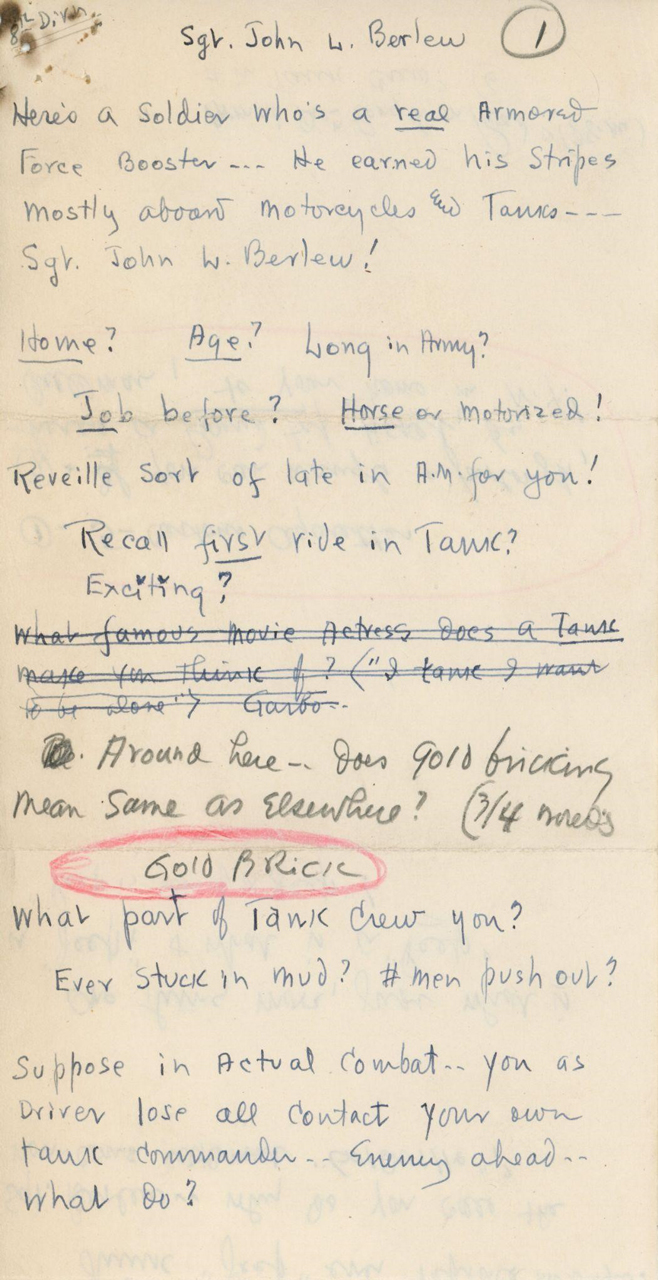 8th Divn
Sgt. John W. Berlew 1
Here's a Soldier who's a real Armored
Force Booster --- He earned his Stripes
mostly aboard motorcycles and Tanks ---
Sgt. John W. Berlew!
Home? Age? Long in Army?
Job before? Horse or motorized!
Reveille sort of late in A.M. for you!
Recall first ride in Tank?
Exciting?
What famous movie Actress does a Tank
make you think of? ("I tank I want
to be alone") Garbo--
Around here-- Does gold bricking
mean same as Elsewhere? (3/4
Gold Brick
What part of Tank Crew you?
Ever stuck in mud? # men push out?
Suppose in Actual Combat-- you as
Driver lose all contact your own
tank commander-- Enemy ahead--
what do?